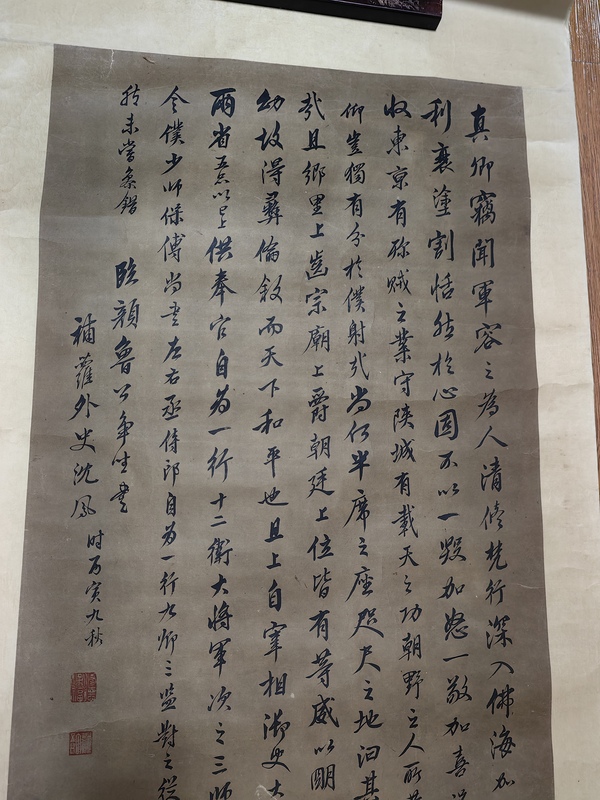 真卿竊聞軍容之為人清修梵行深入佛海加
利衰塗割恬然於心固不以一毀加怒一敬加喜
收東京有殄賊之業守陝城有載天之功朝野之人所
仰豈獨有分於僕射哉尚何半席之座咫尺之地汨其
哉且鄉里上齒宗廟上爵朝廷上位皆有等威以明
幼故得彝倫敘而天下和平也且上自宰相御史大
兩省五品以上供奉官自為一行十二衛大將軍次之三師
令僕少師保傅尚書左右丞侍郎自為一行九卿三監對之從
然未嘗參錯
臨顏魯公爭坐書
補蘿外史沈鳳
時丙寅九秋